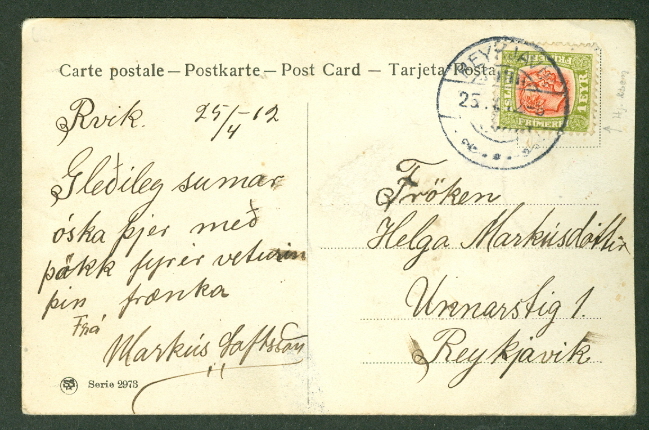 Carte postale — Postkarte — Post Card — Tarjeta Postal
Rvík. 25/4-12
Gleðileg sumar
óska þjer með
þökk fyrir veturin
þín frænka
Frá
Markús
Serie 2973
REYKJA
25.
PRIMERKI
1 EYR.
Fröken
Helga Markúsdóttir
Unnarstíg 1.
Reykjavík